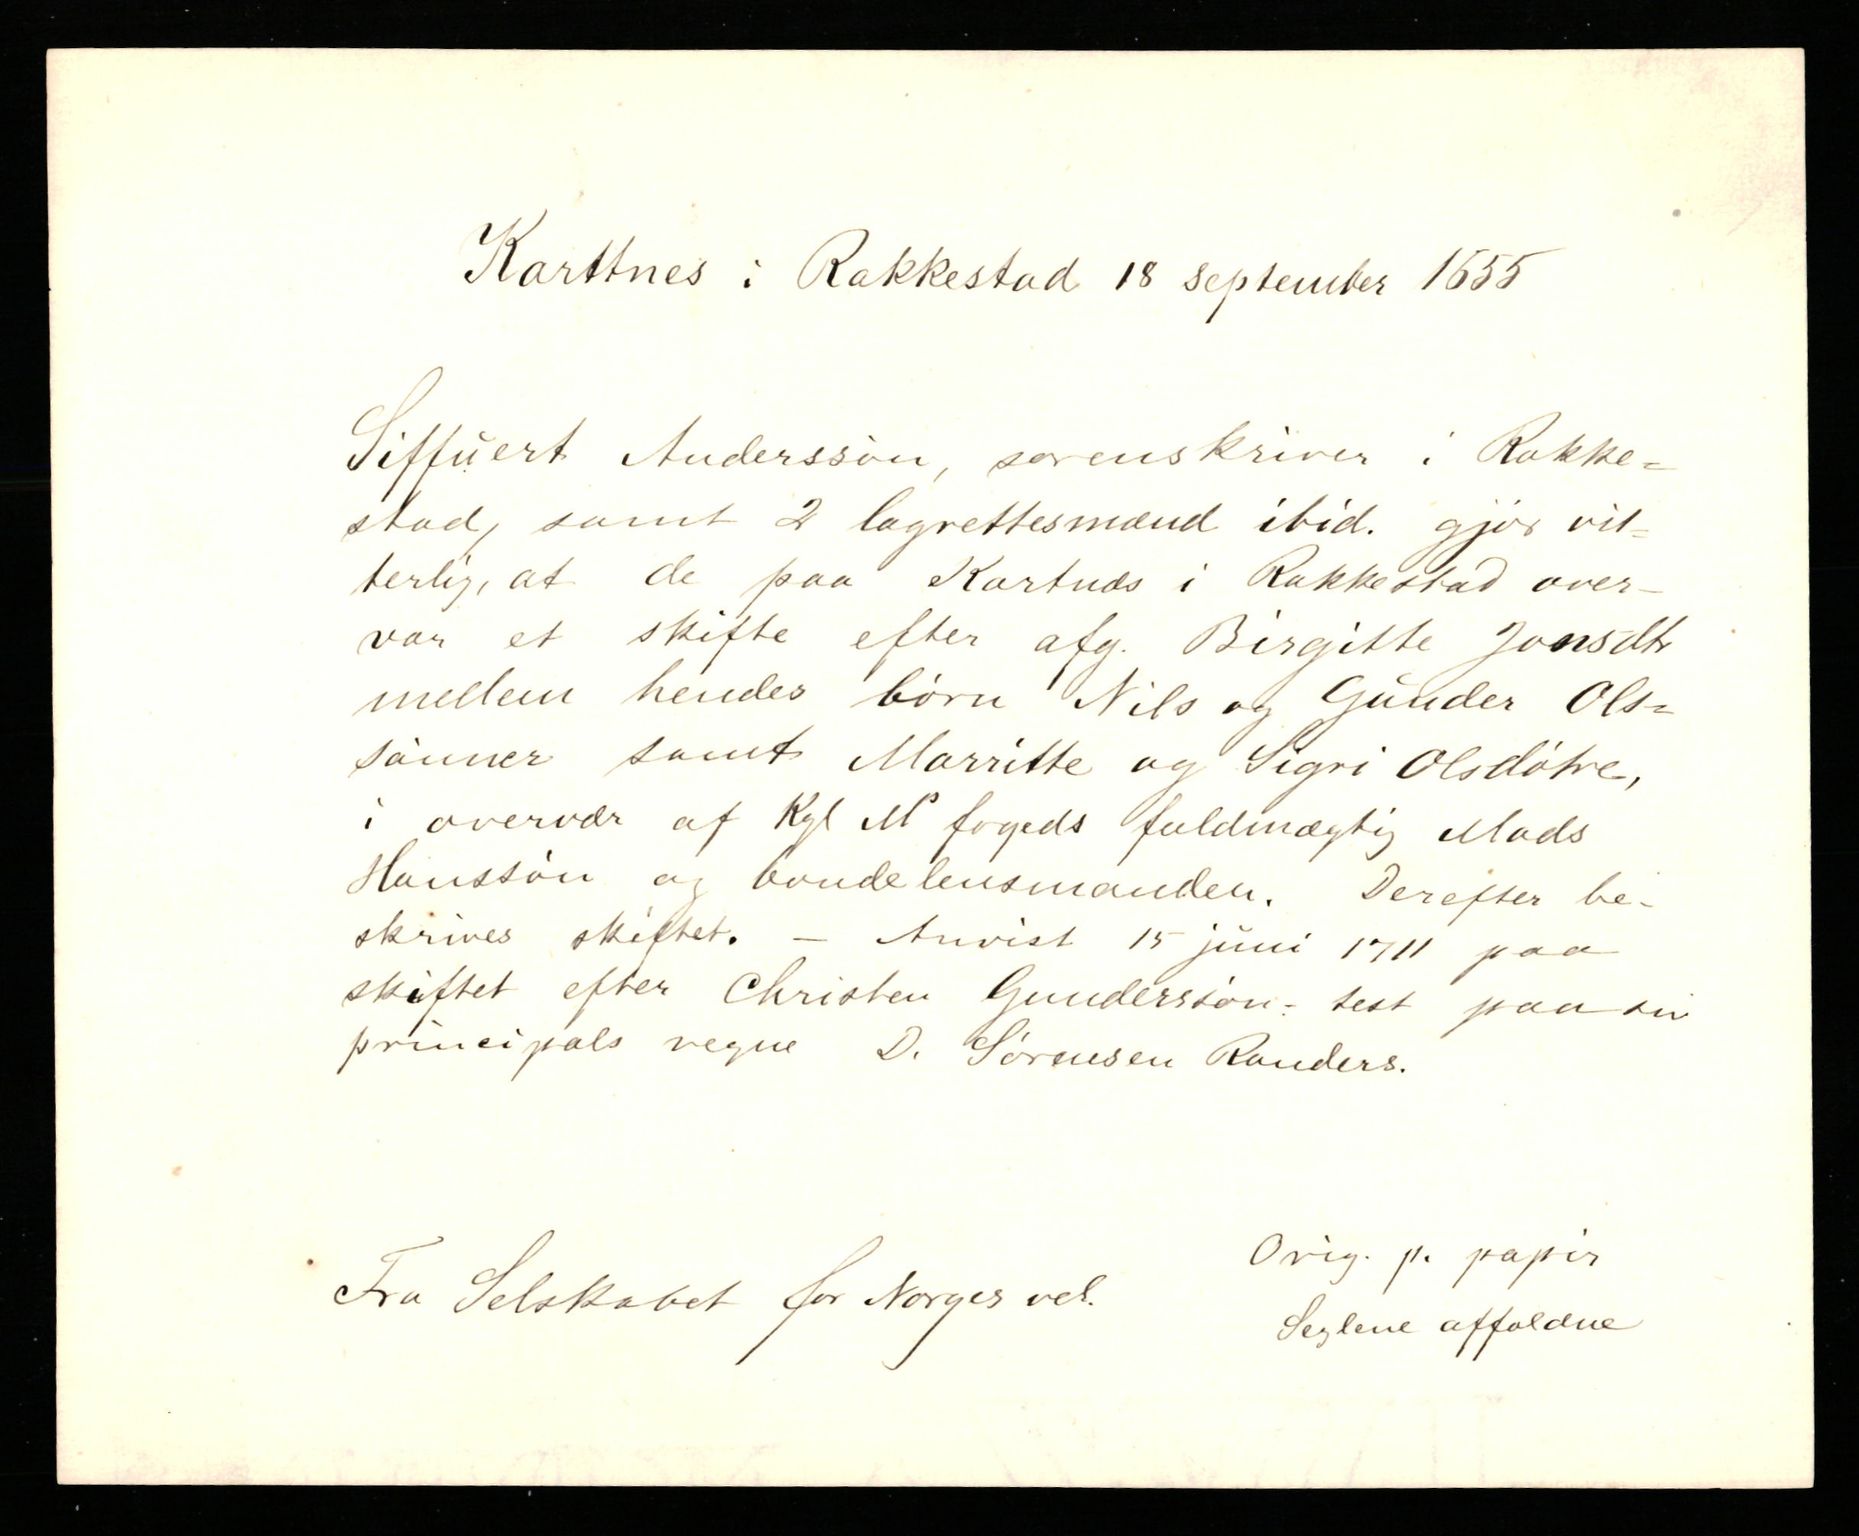 Karttnes i Rakkestad 18 september 1655
Siffuert Anderssøn, sorenskriver i Rakke=
stad, samt 2 lagrettesmænd ibid. gjør vit=
terlig, at de paa Kartnæs i Rakkestad over-
var et skifte efter afg. Birgitte Jonsdtr
mellem hendes børn Nils og Gunder Ols=
sønner samt Marritte og Sigri Olsdøtre,
i overvær af Kgl Mˢ fogeds fuldmægtig Mads
Hanssøn og bondelensmanden. Derefter be-
skrives skiftet. - Anvist 15 juni 1711 paa
skiftet efter Christen Gunderssøn: test paa sin
principals vegne D. Sørensen Randers.
Fra Selskabet for Norges vel.
Orig. p. papir
Seglene affaldne